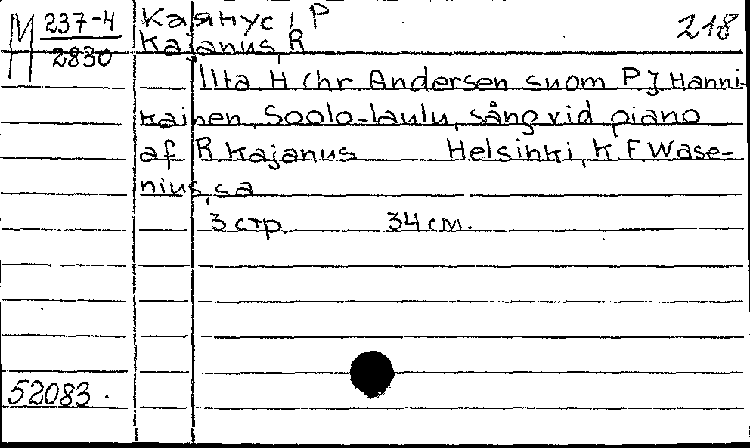 М 237-4
2830
Каянус, Р
Kajanus, R
218
Ilta H Chr Andersen suom P J Hanni-
kainen, Soolo-laulu, sång vid piano
af R. Kajanus Helsinki, K F Wase-
nius, sa
3 стр. 34 см.
52083.